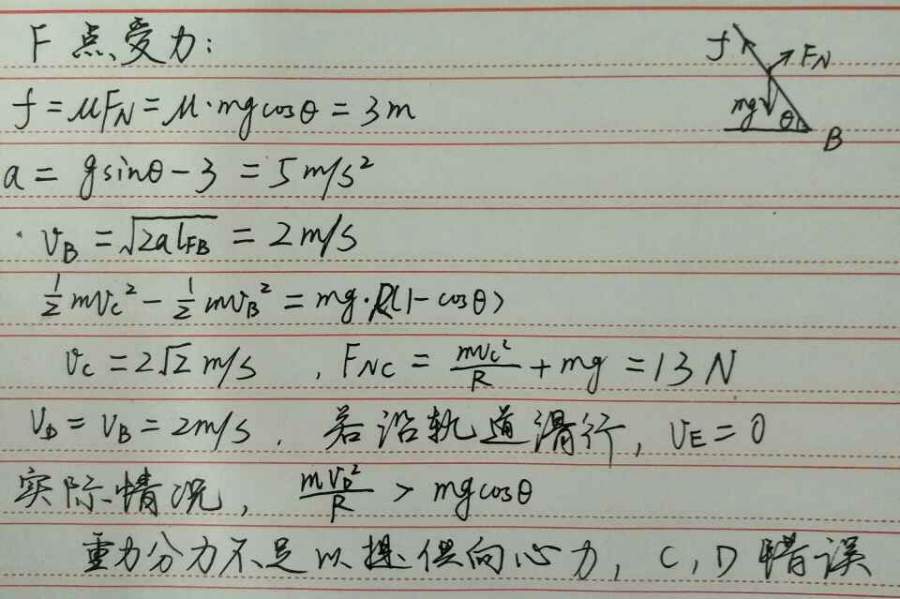 F 点受力：
f = μFN = μ·mgcosθ = 3m
a = gsinθ - 3 = 5 m/s²
vB = √2alFB = 2m/s
½mvc² - ½mvB² = mg·R(1-cosθ)
vc = 2√2 m/s , FNC = mvc²/R + mg = 13 N
VD = VB = 2m/s , 若沿轨道滑行, VE = 0
实际情况, mvD²/R > mgcosθ
重力分力不足以提供向心力, C, D 错误
f
FN
mg
θ
B